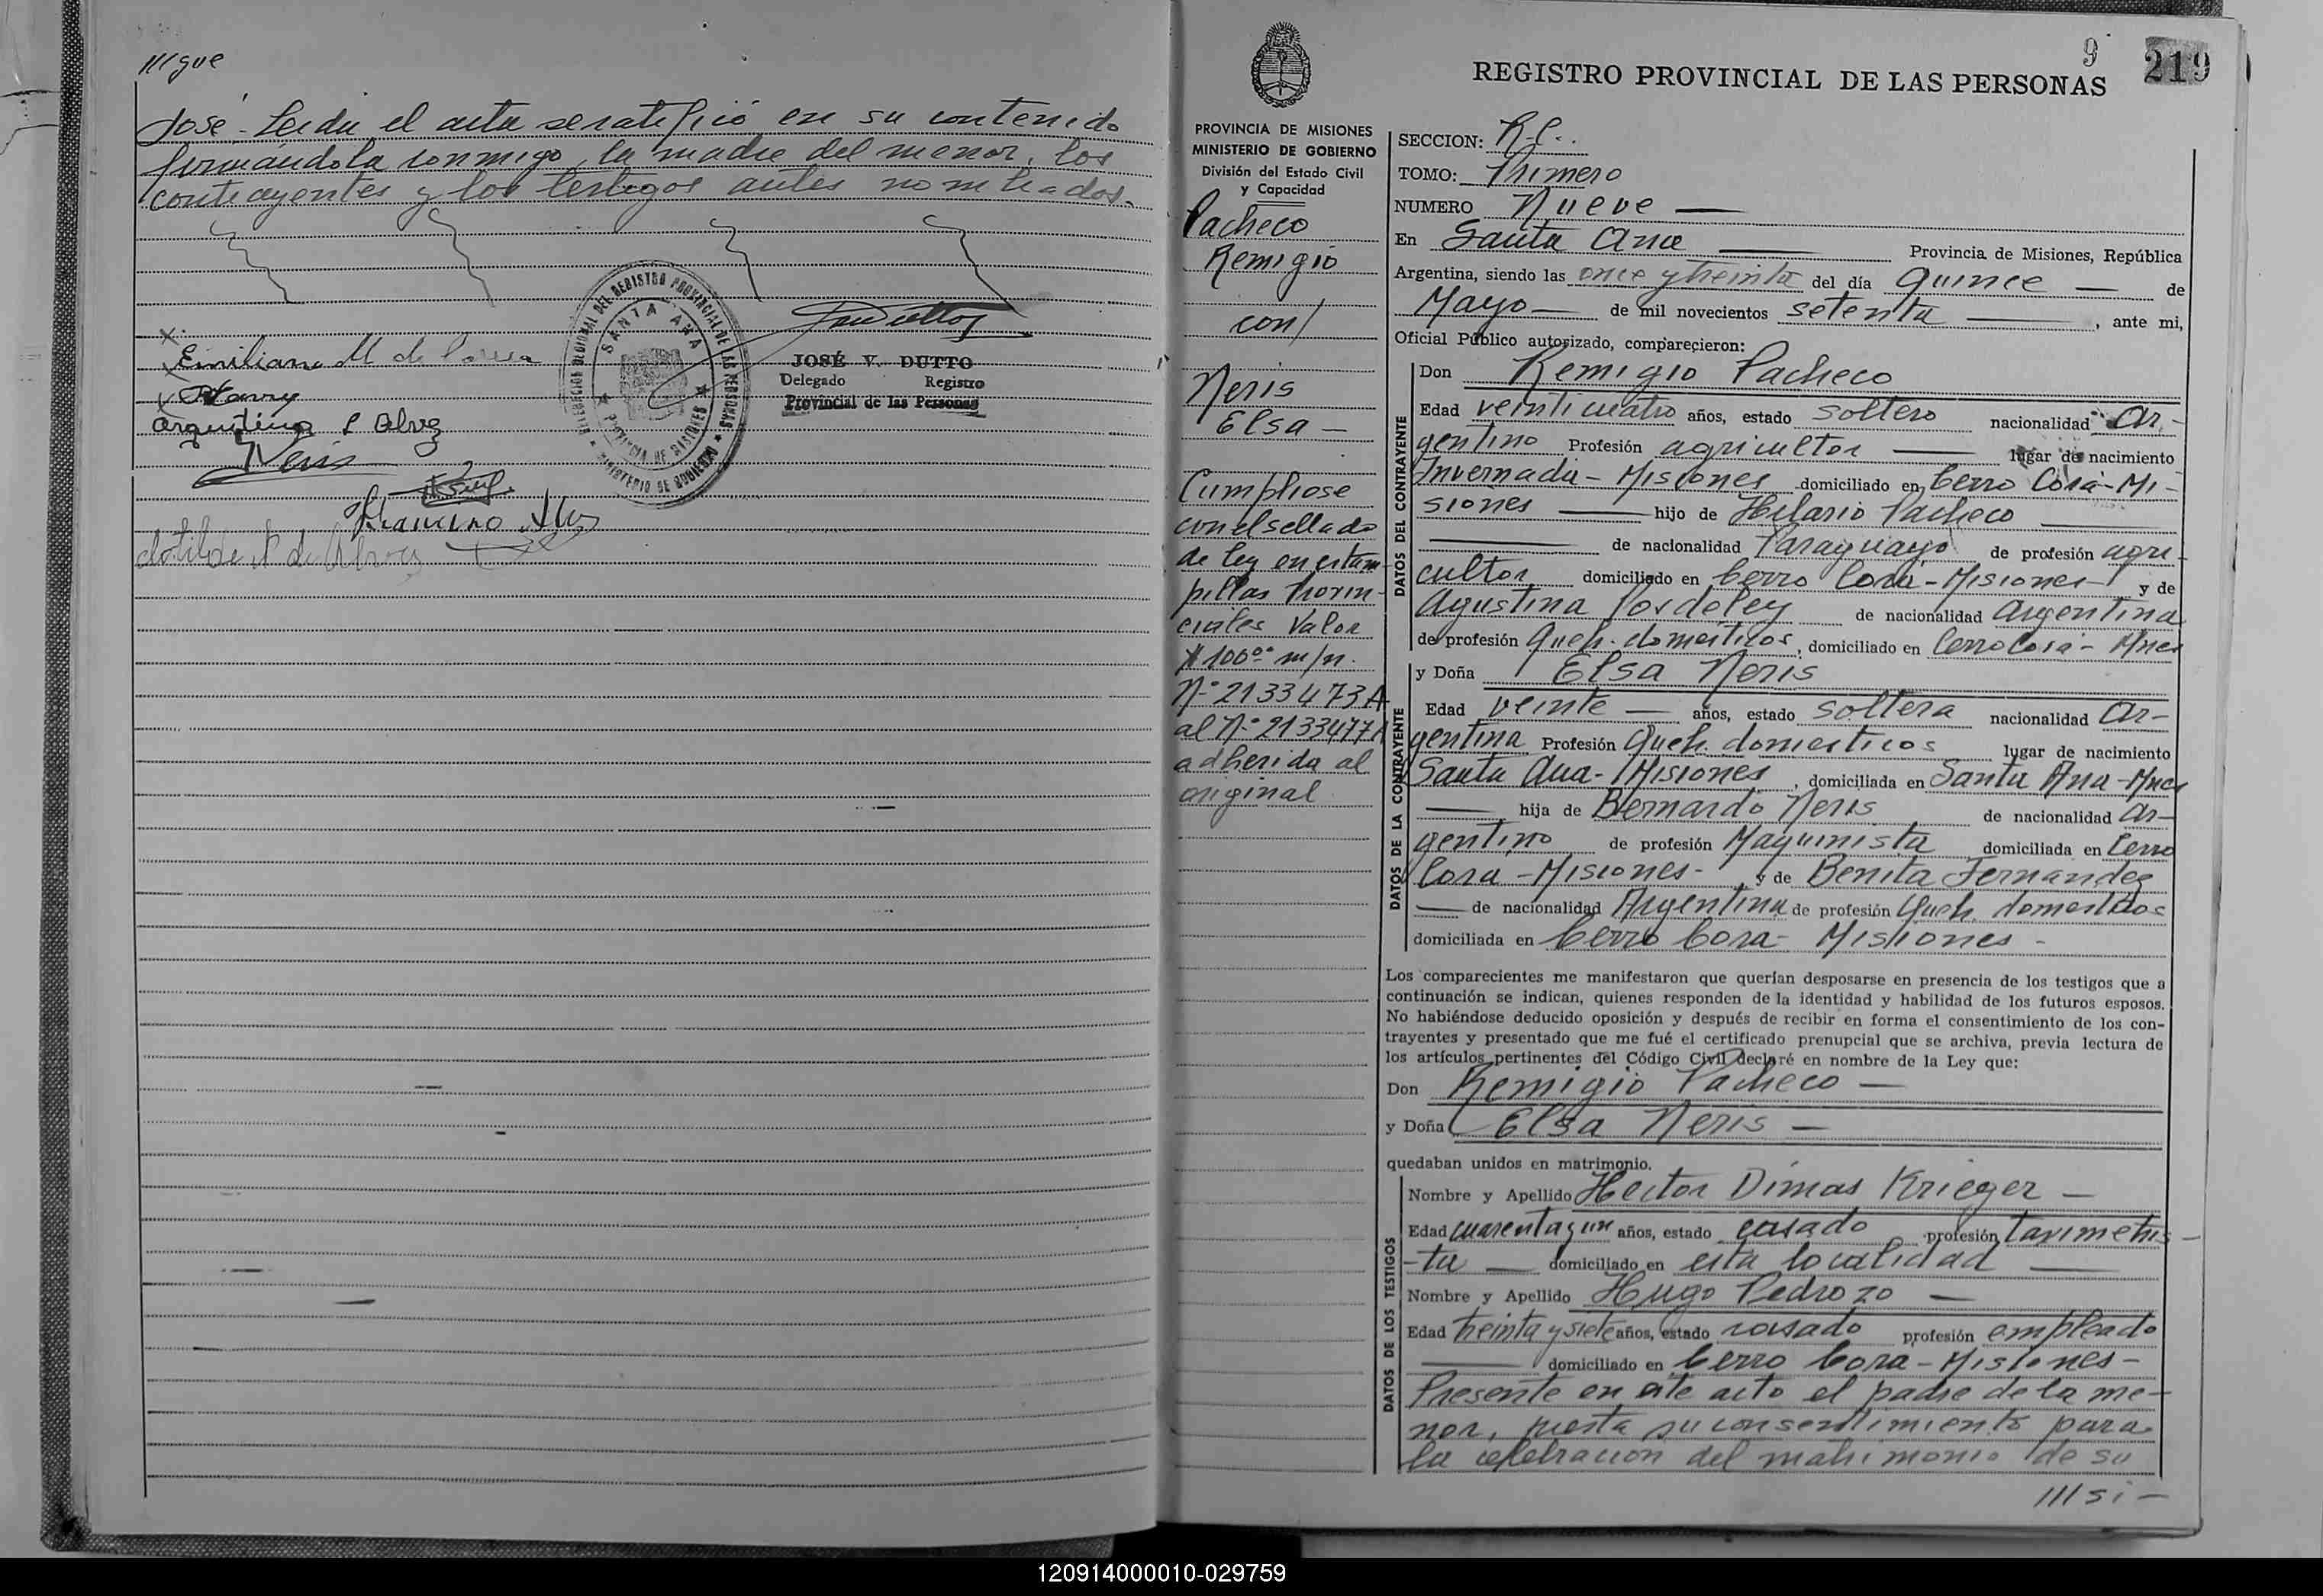 ///gue
José - Leída el acta se ratificó en su contenido
firmándola conmigo, la madre del menor, los
contrayentes y los testigos antes nombrados.
Emiliana M de
Harry
Argentina
Neris
JOSÉ V. DUTTO
Delegado Registro
Provincial de las Personas
DELEGACION REGIONAL DEL REGISTRO PROVINCIAL DE LAS PERSONAS
SANTA ANA
PROVINCIA DE MISIONES
MINISTERIO DE GOBIERNO
9 219
REGISTRO PROVINCIAL DE LAS PERSONAS
PROVINCIA DE MISIONES
MINISTERIO DE GOBIERNO
División del Estado Civil
y Capacidad
Pacheco
Remigio
con/
Neris
Elsa -
Cumpliose
con el sellado
de ley en estam
pillas Provin-
ciales Valor
$ 100 m/n.
Nº 2133473A
al Nº 2133477A
adherida al
original
SECCION: R.C..
TOMO: Primero
NUMERO Nueve —
En Santa Ana — Provincia de Misiones, República
Argentina, siendo las once y treinta del día quince — de
Mayo — de mil novecientos setenta — , ante mi,
Oficial Público autorizado, comparecieron:
DATOS DEL CONTRAYENTE
Don Remigio Pacheco
Edad veinticuatro años, estado soltero nacionalidad Ar-
gentino Profesión agricultor — lugar de nacimiento
Invernada - Misiones domiciliado en Cerro Corá - Mi-
siones — hijo de Hilario Pacheco —
— de nacionalidad Paraguayo de profesión agri-
cultor domiciliado en Cerro Corá - Misiones - y de
Agustina de nacionalidad Argentina
de profesión Queh. domésticos, domiciliado en Cerro Corá - Mnes
DATOS DE LA CONTRAYENTE
y Doña Elsa Neris
Edad veinte — años, estado soltera nacionalidad Ar-
gentina Profesión Queh. domesticos lugar de nacimiento
Santa Ana - Misiones , domiciliada en Santa Ana - Mnes
— hija de Bernardo Neris de nacionalidad Ar-
gentino de profesión Maquinista domiciliada en Cerro
Cora - Misiones - y de Benita Fernandez
— de nacionalidad Argentina de profesión Queh. domesticos
domiciliada en Cerro Cora - Misiones -
Los comparecientes me manifestaron que querían desposarse en presencia de los testigos que a
continuación se indican, quienes responden de la identidad y habilidad de los futuros esposos.
No habiéndose deducido oposición y después de recibir en forma el consentimiento de los con-
trayentes y presentado que me fué el certificado prenupcial que se archiva, previa lectura de
los artículos pertinentes del Código Civil declaré en nombre de la Ley que:
Don Remigio Pacheco —
y Doña Elsa Neris —
quedaban unidos en matrimonio.
DATOS DE LOS TESTIGOS
Nombre y Apellido Hector Dimas Krieger —
Edad cuarenta y un años, estado casado profesión taximetris-
-ta — domiciliado en esta localidad —
Nombre y Apellido Hugo Pedrozo —
Edad treinta y siete años, estado casado profesión empleado
— domiciliado en Cerro Cora - Misiones -
Presente en este acto el padre de la me-
nor, presta su consentimiento para
la celebracion del matrimonio de su
/// si -
120914000010-029759